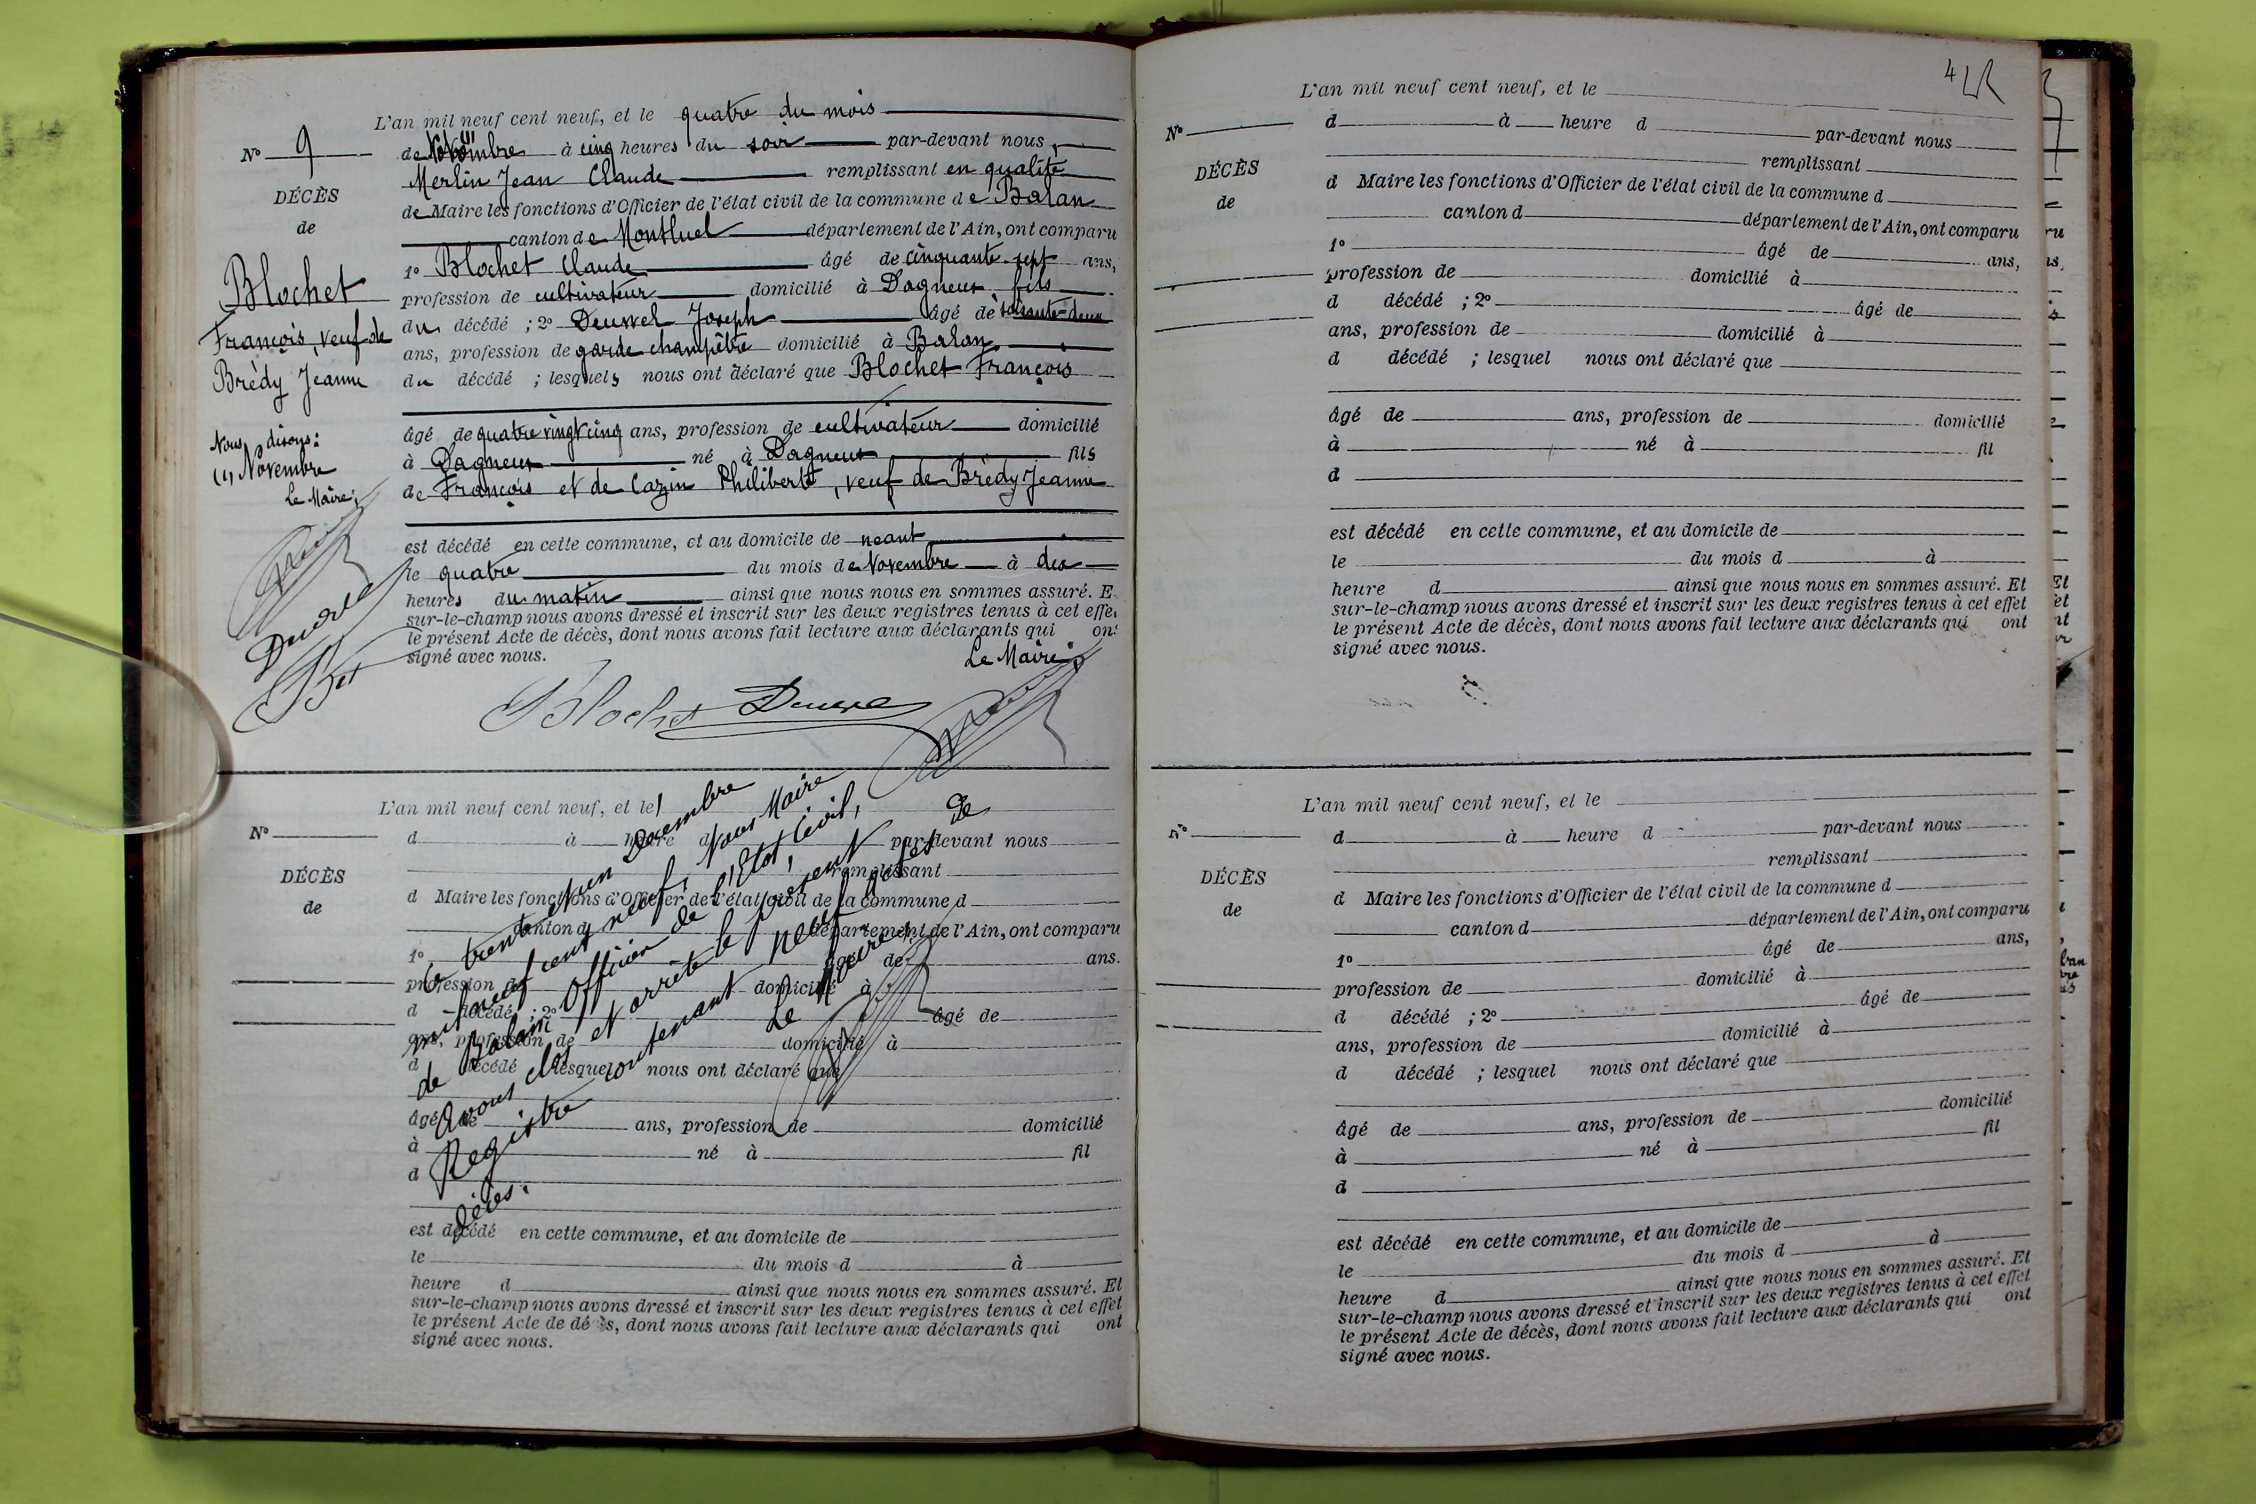 L'an mil neuf cent neuf, et le quatre du mois
No 9
de Novembre (1) à cinq heures du soir par-devant nous,
Merlin Jean Claude remplissant en qualité
DÉCÈS
de Maire les fonctions d'Officier de l'état civil de la commune de Balan
de
canton de Montluel département de l'Ain, ont comparu
1o Blochet Claude âgé de cinquante-sept ans,
Blochet
profession de cultivateur domicilié à Dagneux fils
François, veuf de
du décédé ; 2o Deuvrel Joseph âgé de soixante-deux
ans, profession de garde champêtre domicilié à Balan,
Brédy Jeanne
du décédé ; lesquels nous ont déclaré que Blochet François
âgé de quatre vingt cinq ans, profession de cultivateur domicilié
Nous disons:
à Dagneux né à Dagneux fils
(1) Novembre
de François et de Cazin Philiberte, veuf de Brédy Jeanne
Le Maire,
est décédé en cette commune, et au domicile de neant
le quatre du mois de Novembre à dix
heures du matin ainsi que nous nous en sommes assuré. E
sur-le-champ nous avons dressé et inscrit sur les deux registres tenus à cet effe
le présent Acte de décès, dont nous avons fait lecture aux déclarants qui on
signé avec nous.
Le Maire,
Blochet
L'an mil neuf cent neuf, et le
No
d à heure d par-devant nous
remplissant
DÉCÈS
d Maire les fonctions d'Officier de l'état civil de la commune d
de
canton d département de l'Ain, ont comparu
1o âgé de ans.
profession de domicilié à
d décédé ; 2o âgé de
ans, profession de domicilié à
d décédé ; lesquel nous ont déclaré que
âgé de ans, profession de domicilié
à né à fil
d
est décédé en cette commune, et au domicile de
le du mois d à
heure d ainsi que nous nous en sommes assuré. Et
sur-le-champ nous avons dressé et inscrit sur les deux registres tenus à cet effet
le présent Acte de décès, dont nous avons fait lecture aux déclarants qui ont
signé avec nous.
Le trente et un Decembre
mil neuf cent neuf, Nous Maire
de Balan Officier de l'Etat Civil,
Avons clos et arrêté le présent
Registre contenant neuf actes de
Décès.
Le Maire,
4
L'an mil neuf cent neuf, et le
No
d à heure d par-devant nous
remplissant
DÉCÈS
d Maire les fonctions d'Officier de l'état civil de la commune d
de
canton d département de l'Ain, ont comparu
1o âgé de ans,
profession de domicilié à
d décédé ; 2o âgé de
ans, profession de domicilié à
d décédé ; lesquel nous ont déclaré que
âgé de ans, profession de domicilié
à né à fil
d
est décédé en cette commune, et au domicile de
le du mois d à
heure d ainsi que nous nous en sommes assuré. Et
sur-le-champ nous avons dressé et inscrit sur les deux registres tenus à cet effet
le présent Acte de décès, dont nous avons fait lecture aux déclarants qui ont
signé avec nous.
L'an mil neuf cent neuf, et le
No
d à heure d par-devant nous
remplissant
DÉCÈS
d Maire les fonctions d'Officier de l'état civil de la commune d
de
canton d département de l'Ain, ont comparu
1o âgé de ans,
profession de domicilié à
d décédé ; 2o âgé de
ans, profession de domicilié à
d décédé ; lesquel nous ont déclaré que
âgé de ans, profession de domicilié
à né à fil
d
est décédé en cette commune, et au domicile de
le du mois d à
heure d ainsi que nous nous en sommes assuré. Et
sur-le-champ nous avons dressé et inscrit sur les deux registres tenus à cet effet
le présent Acte de décès, dont nous avons fait lecture aux déclarants qui ont
signé avec nous.